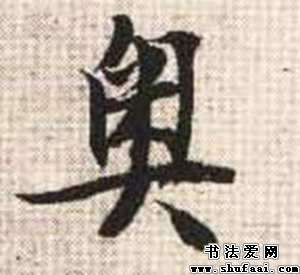 奥
书法爱网
www.shufaai.com